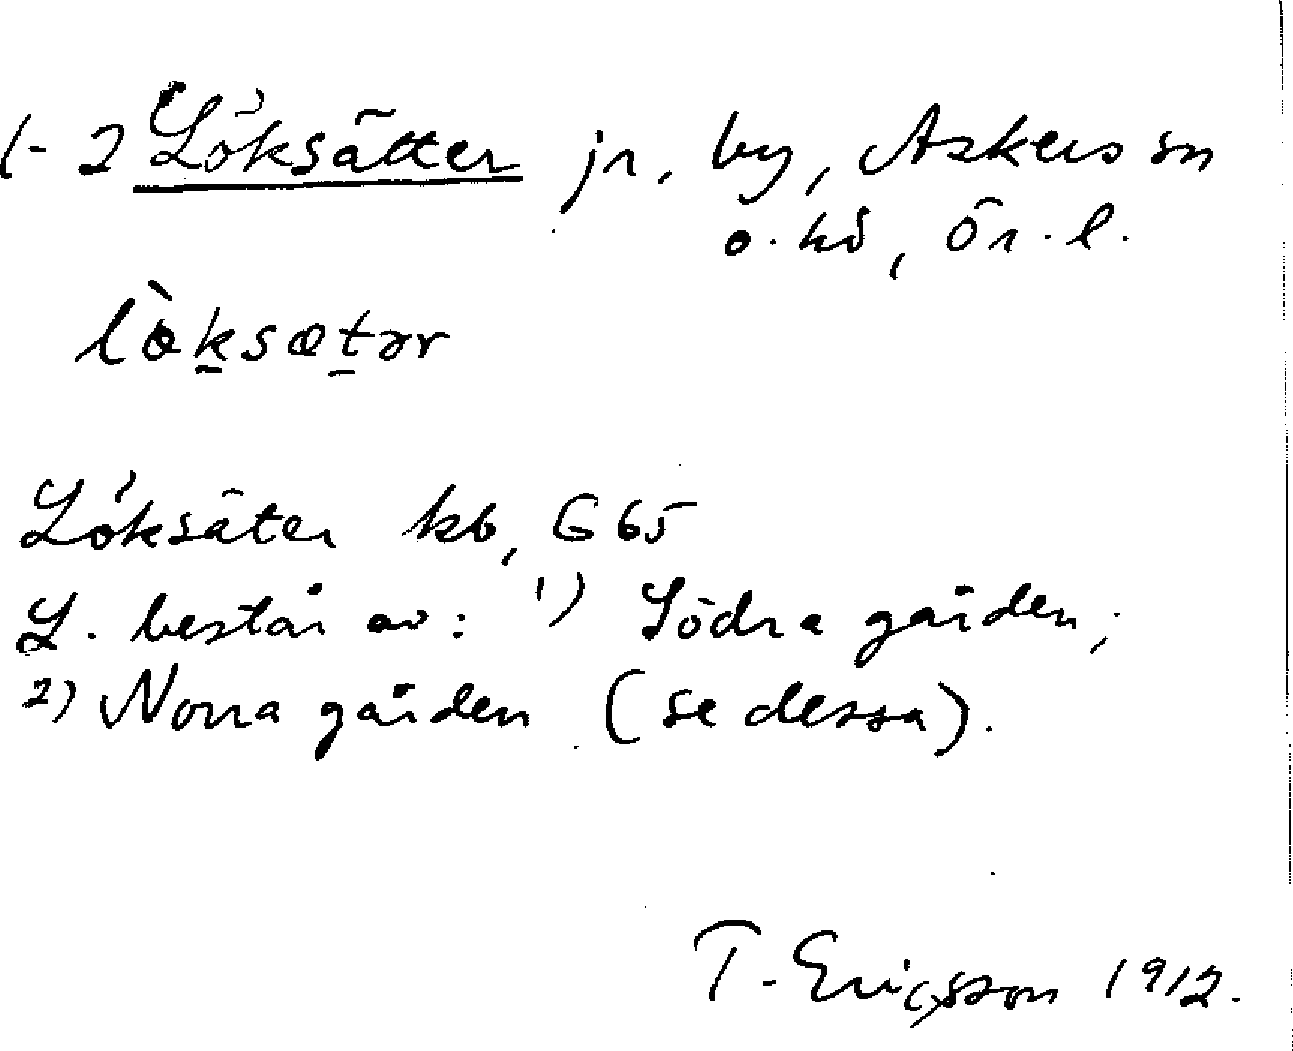 1-2 Löksätter jr, by, Askers sn
o. hd, Ör. l.
lø̀ksætər
Löksäter kb, G65
L. består av: 1) Södra gården,
2) Norra gården (se dessa).
T. Ericsson 1912.